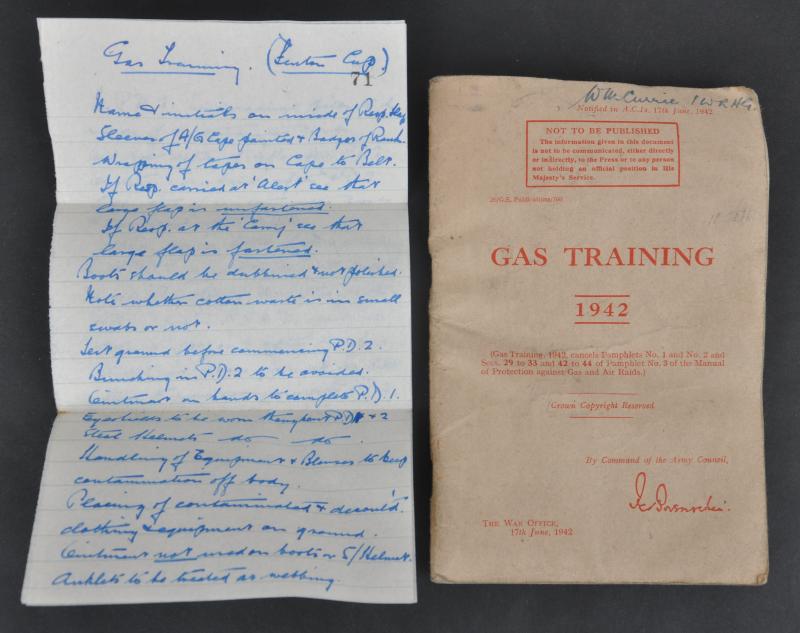 Gas Training. (Fenton Cap)
71
Name & initials on inside of Resp. Flap
Sleeves of A/G Cape painted & Badges of Rank.
Wrapping of tapes on Cape to Belt.
If Resp. carried at 'Alert' see that
large flap is unfastened.
If Resp. at the 'Carry' see that
large flap is fastened.
Boots should be dubbined & not polished.
Note whether cotton waste is in small
swabs or not.
Test ground before commencing P.D. 2.
Bunching in P.D. 2 to be avoided.
Ointment on hands to complete P.D. 1.
Eyeshields to be worn throughout P.D. 1 & 2
Steel Helmets do do.
Handling of Equipment & Blouses to keep
contamination off body.
Placing of contaminated & decont'd
clothing & equipment on ground.
Ointment not used on boots or S/Helmet.
Anklets to be treated as webbing.
Wm Currie 1 W.R.H.G.
Notified in A.C.Is. 17th June, 1942
NOT TO BE PUBLISHED
The information given in this document
is not to be communicated, either directly
or indirectly, to the Press or to any person
not holding an official position in His
Majesty's Service.
26/G.S. Publications/760
GAS TRAINING
1942
(Gas Training, 1942, cancels Pamphlets No. 1 and No. 2 and
Secs. 29 to 33 and 42 to 44 of Pamphlet No. 3 of the Manual
of Protection against Gas and Air Raids.)
Crown Copyright Reserved
By Command of the Army Council,
THE WAR OFFICE,
17th June, 1942